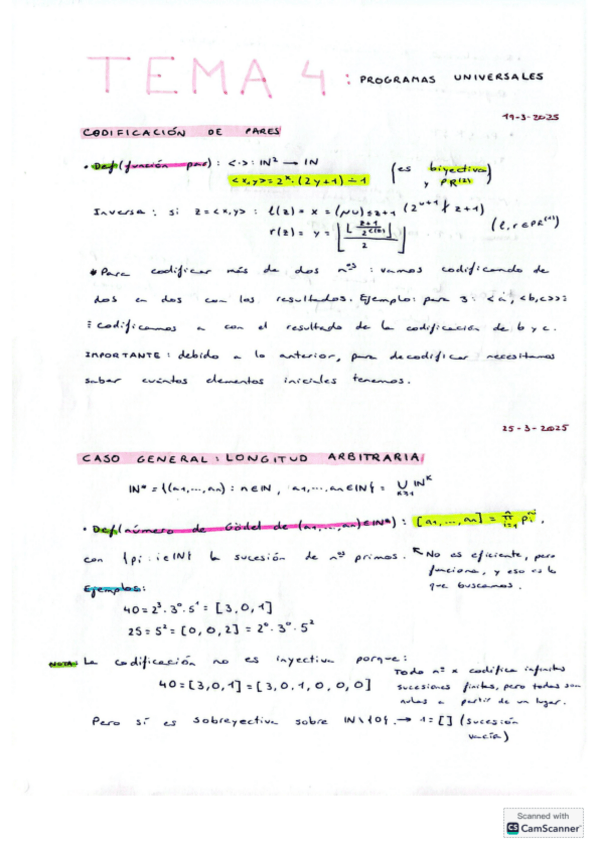 TEMA 4: PROGRAMAS UNIVERSALES
19-3-2025
CODIFICACIÓN DE PARES
• Def (función par): <·>: IN² → IN (es biyectiva)
<x,y> = 2ˣ·(2y+1) ∸ 1 y PR⁽²⁾
Inversa: si z = <x,y>: l(z) = x = (Nu)≤z+1 (2ᵘ⁺¹ ∤ z+1)
r(z) = y = ⌊⌊(z+1)/2^l(z)⌋/2⌋ (l, r ∈ PR⁽¹⁾)
• Para codificar más de dos nºs: vamos codificando de
dos en dos con los resultados. Ejemplo: para 3: <a, <b,c>>≡
≡ codificamos a con el resultado de la codificación de b y c.
IMPORTANTE: debido a lo anterior, para decodificar necesitamos
saber cuántos elementos iniciales tenemos.
25-3-2025
CASO GENERAL: LONGITUD ARBITRARIA
IN* = {(a1,...,an): n∈IN, a1,...,an∈IN} = ∪ₖ≥1 INᵏ
• Def (número de Gödel de (a1,...,an)∈IN*): [a1,...,an] = ∏ⁿᵢ₌₁ pᵢ^aᵢ,
con {pi: i∈IN} la sucesión de nºs primos. ↖ No es eficiente, pero
funciona, y eso es lo
que buscamos.
Ejemplos:
40 = 2³·3⁰·5¹ = [3,0,1]
25 = 5² = [0,0,2] = 2⁰·3⁰·5²
NOTA: La codificación no es inyectiva porque:
40 = [3,0,1] = [3,0,1,0,0,0]
Todo nº x codifica infinitas
sucesiones finitas, pero todas son
nulas a partir de un lugar.
Pero sí es sobreyectiva sobre IN\{0}. → 1 = [] (sucesión
vacía)
Scanned with
CS CamScanner